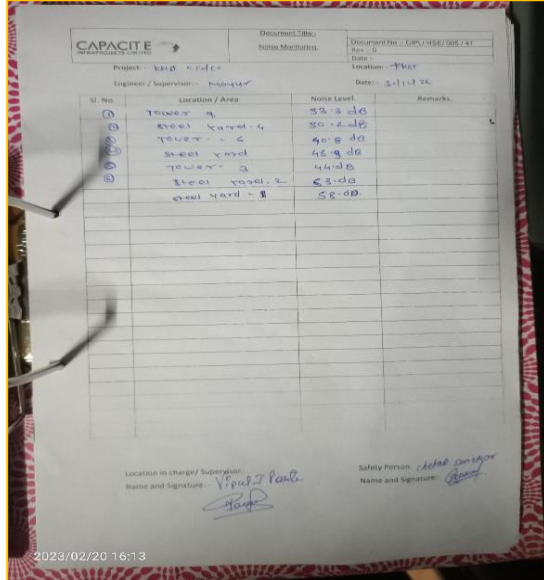 CAPACIT'E
INFRAPROJECTS LIMITED
Document Title:-
Noise Monitoring.
Document No :- CIPL/ HSE/ 005 / 41
Rev :- 0
Date :-
Project:-
Location:-
Engineer / Supervisor:-
Date:-
Sl. No. Location / Area Noise Level. Remarks.
① Tower 9 53.3 dB
② Steel Yard-4 50.2 dB
Tower - 6 40.8 dB
Steel Yard 48.9 dB
Tower - 2 44 dB
⑥ Steel Yard. 2 53.dB
Steel Yard - 58.dB.
Location in charge/ Supervisor:
Name and Signature:- Vipul
Safety Person
Name and Signature:-
2023/02/20 16:13